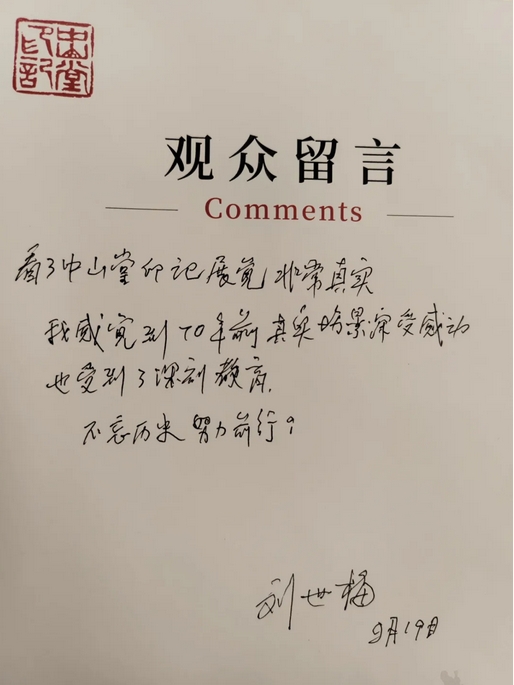 中堂印记
观众留言
Comments
看了中山堂印记展览非常真实
我感觉到70年前真实场景深受感动
也受到了深刻教育.
不忘历史努力前行!
刘世
9月19日